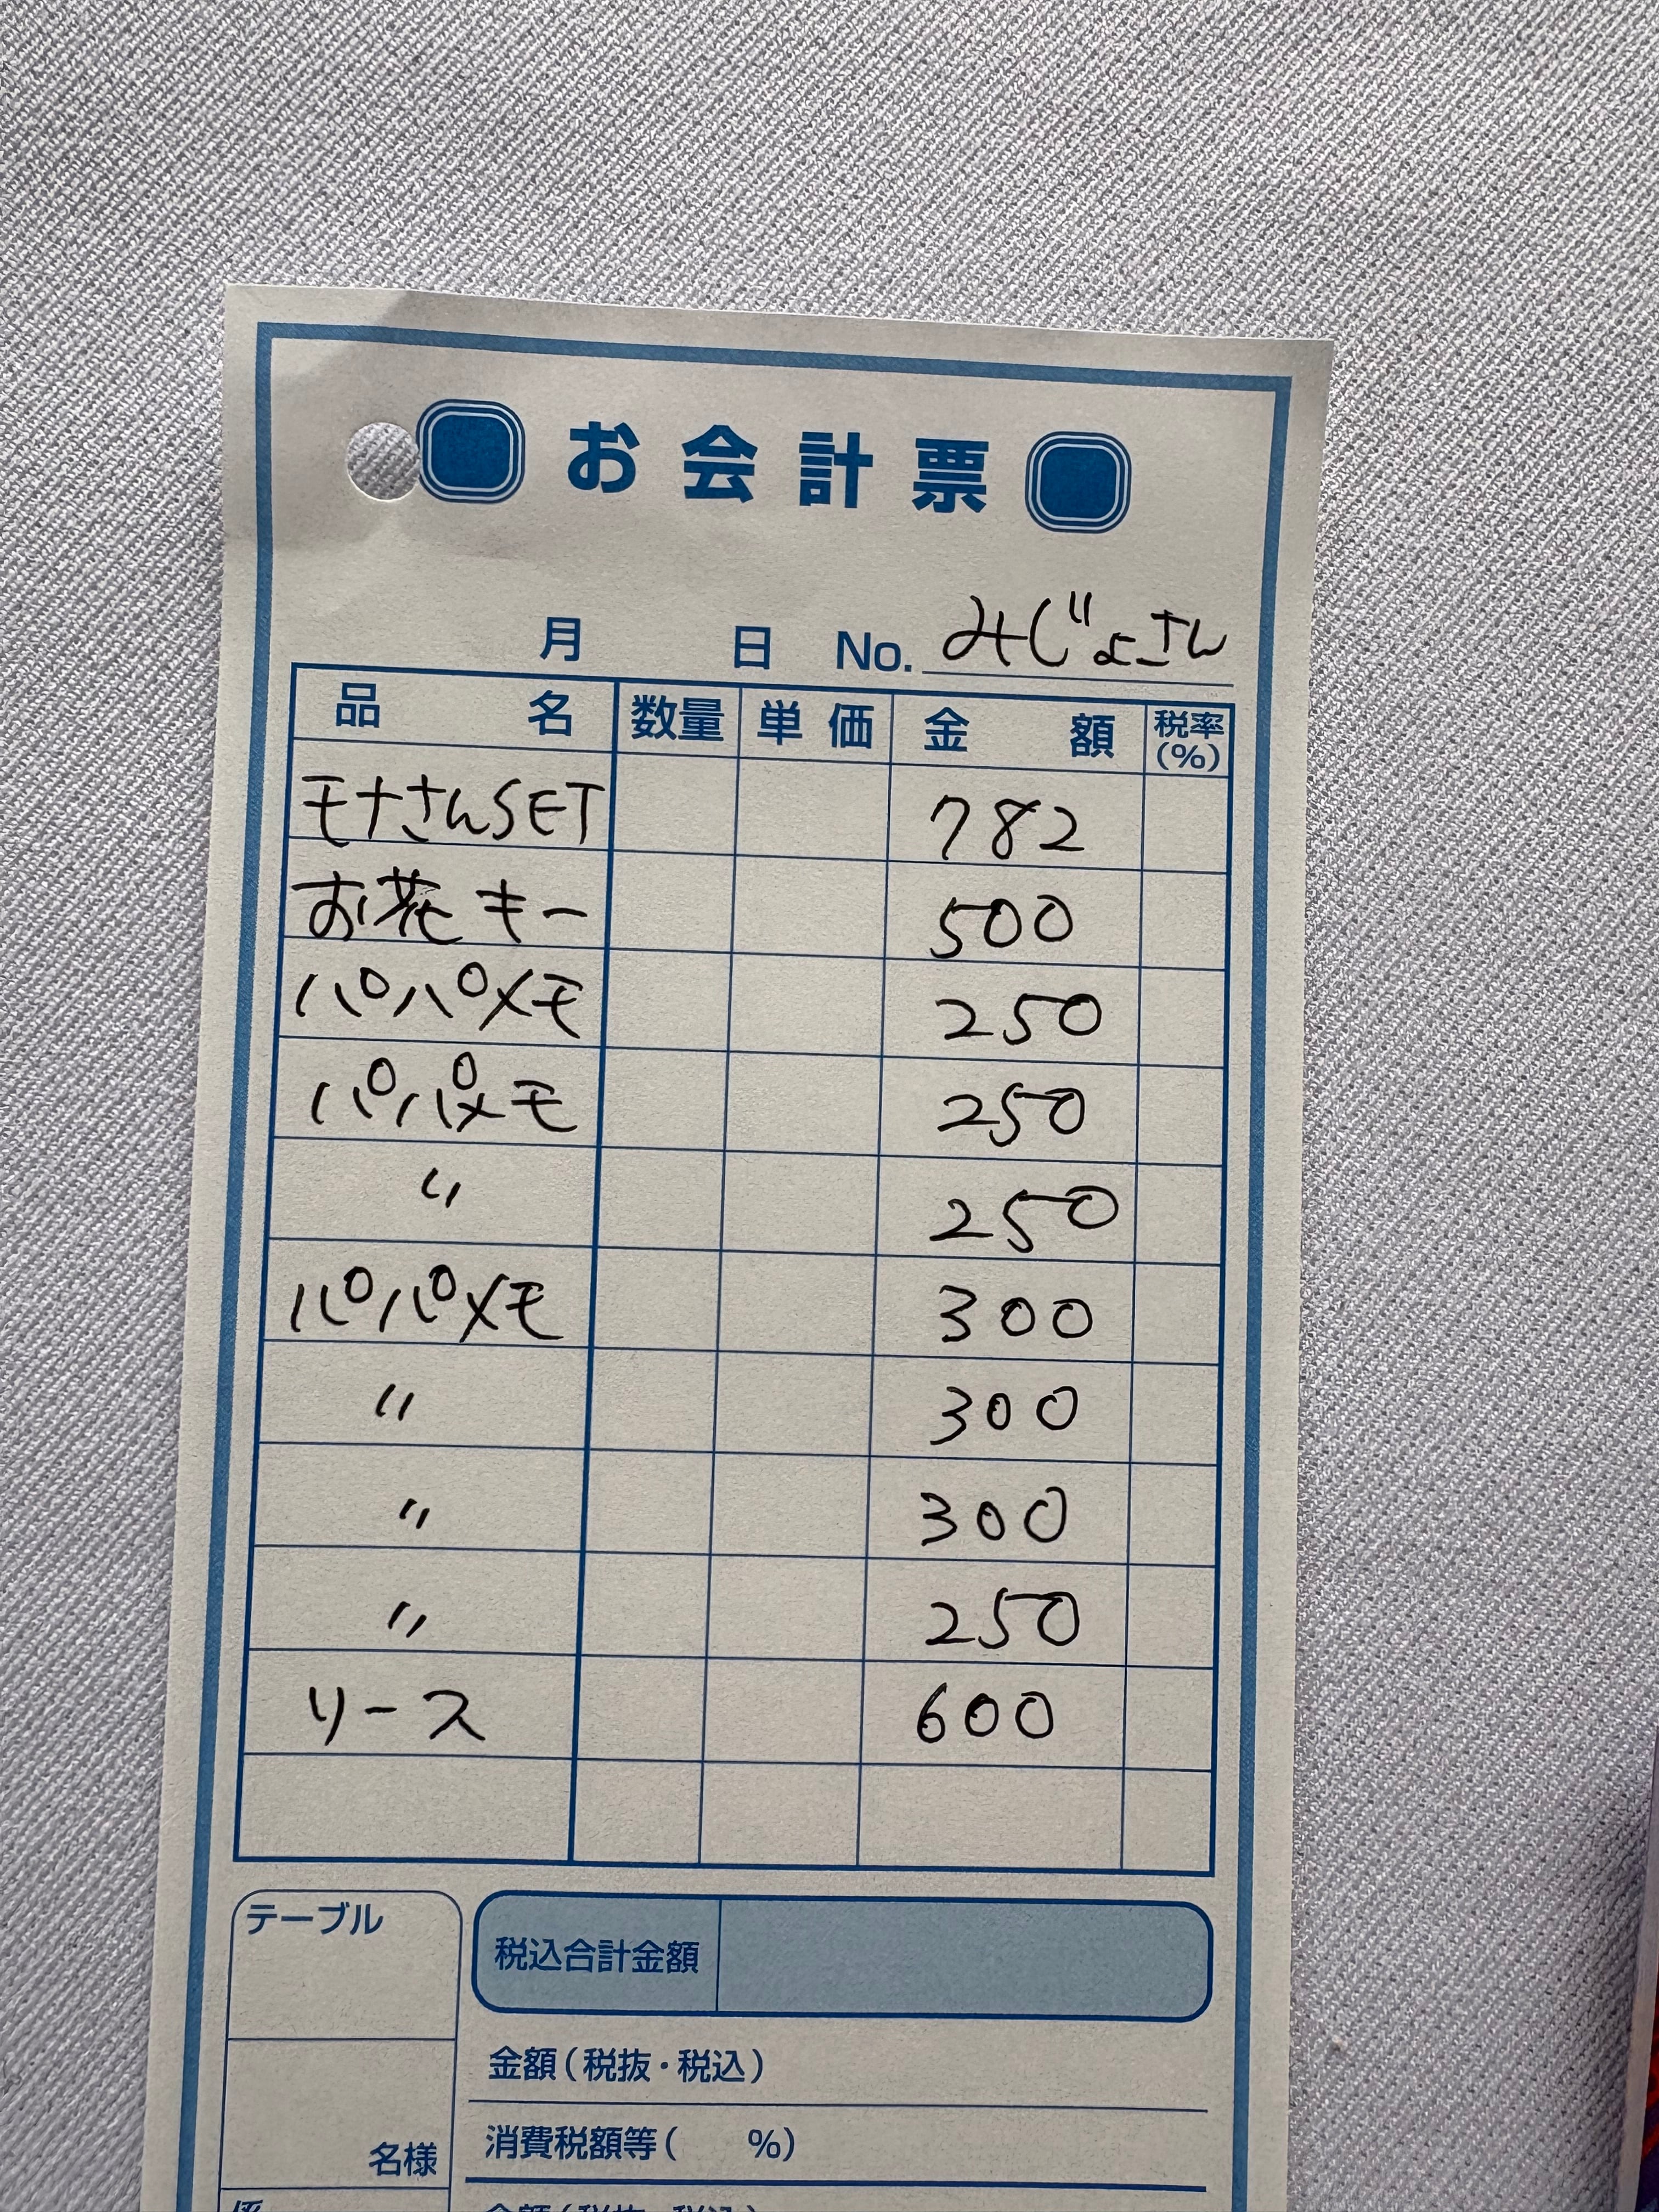 お会計票
月 日 No. みじょさん
品名 数量 単価 金額 税率(%)
モナさんSET 782
お花キー 500
パパメモ 250
パパメモ 250
〃 250
パパメモ 300
〃 300
〃 300
〃 250
リース 600
テーブル
税込合計金額
金額(税抜・税込)
消費税額等( %)
名様